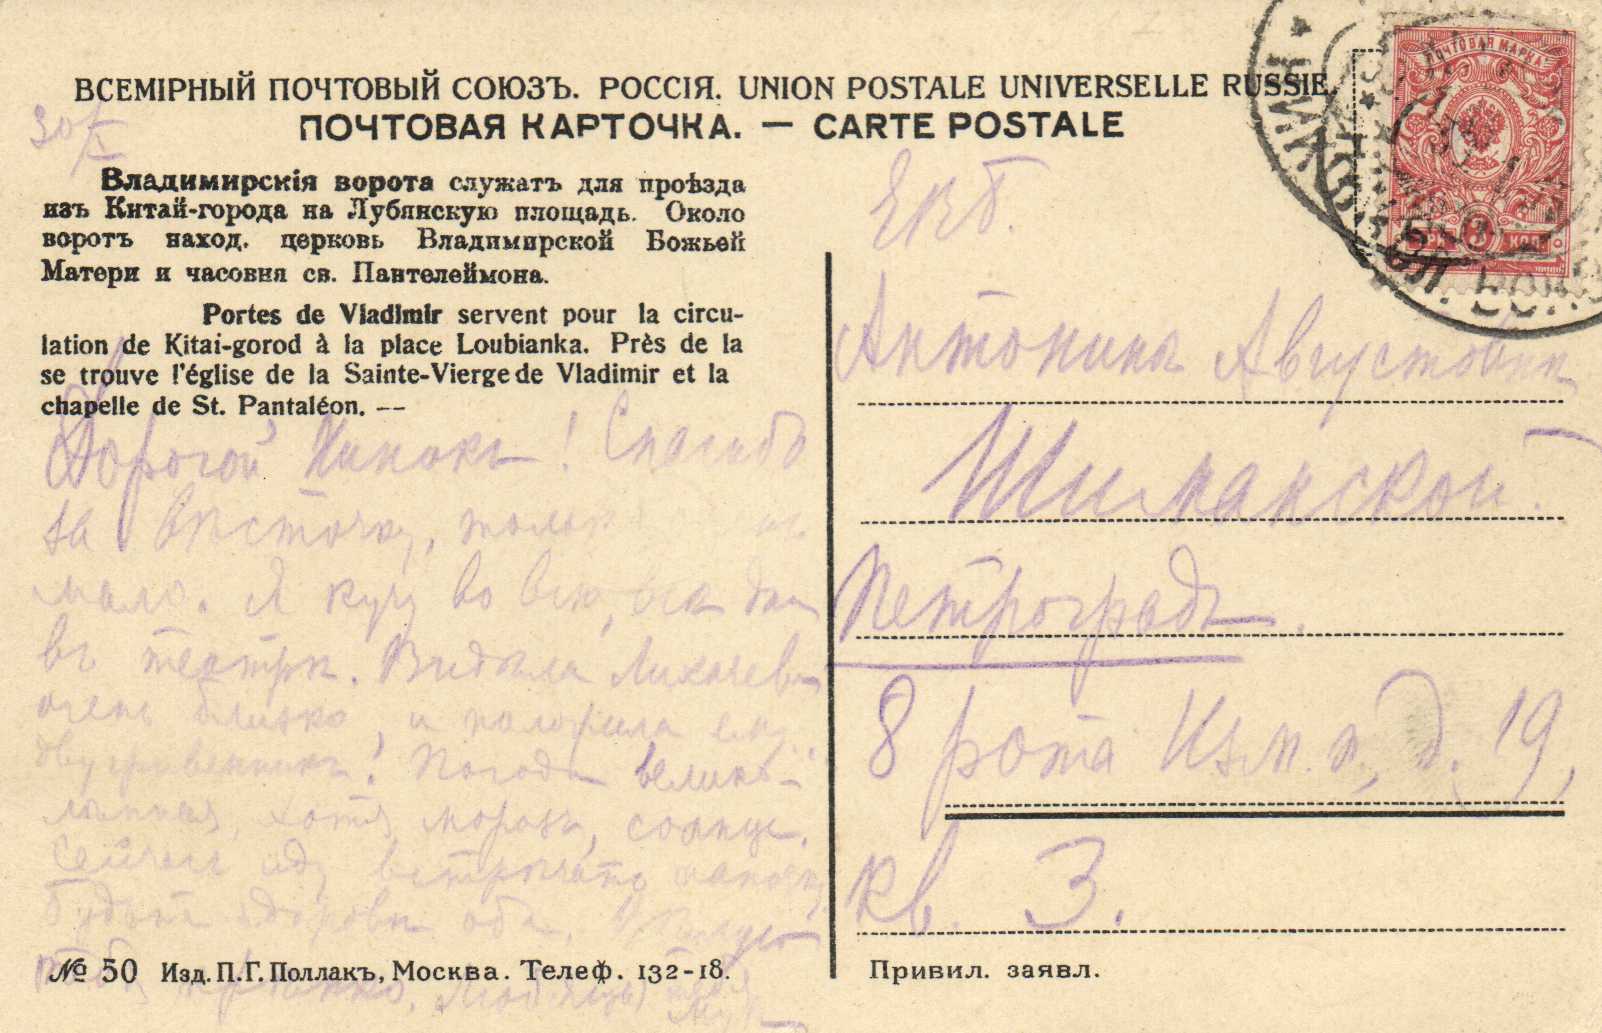 ВСЕМІРНЫЙ ПОЧТОВЫЙ СОЮЗЪ. РОССІЯ. UNION POSTALE UNIVERSELLE RUSSIE.
ПОЧТОВАЯ КАРТОЧКА. — CARTE POSTALE
Владимирскія ворота служатъ для проѣзда
изъ Китай-города на Лубянскую площадь. Около
воротъ наход. церковь Владимирской Божьей
Матери и часовня св. Пантелеймона.
Portes de Vladimir servent pour la circu-
lation de Kitai-gorod à la place Loubianka. Près de la
se trouve l'église de la Sainte-Vierge de Vladimir et la
chapelle de St. Pantaléon. —
Дорогой! Спасибо
за вѣсточку,
мало. Я кучу во всю, два дня
въ театрѣ. Видѣла Лихачева
очень близко, и положила ему
двугривенникъ! Погода велико-
лѣпная, хотя морозъ, солнце.
Сейчасъ иду встрѣчать
Будьте здоровы оба.
крѣпко.
№ 50 Изд. П.Г. Поллакъ, Москва. Телеф. 132-18.
ПОЧТОВАЯ МАРКА
3 КОП.
Евб.
Антонинѣ Августовнѣ
Шиманской.
Петроградъ.
8 рота Изм. п., д. 19,
кв. 3.
Привил. заявл.